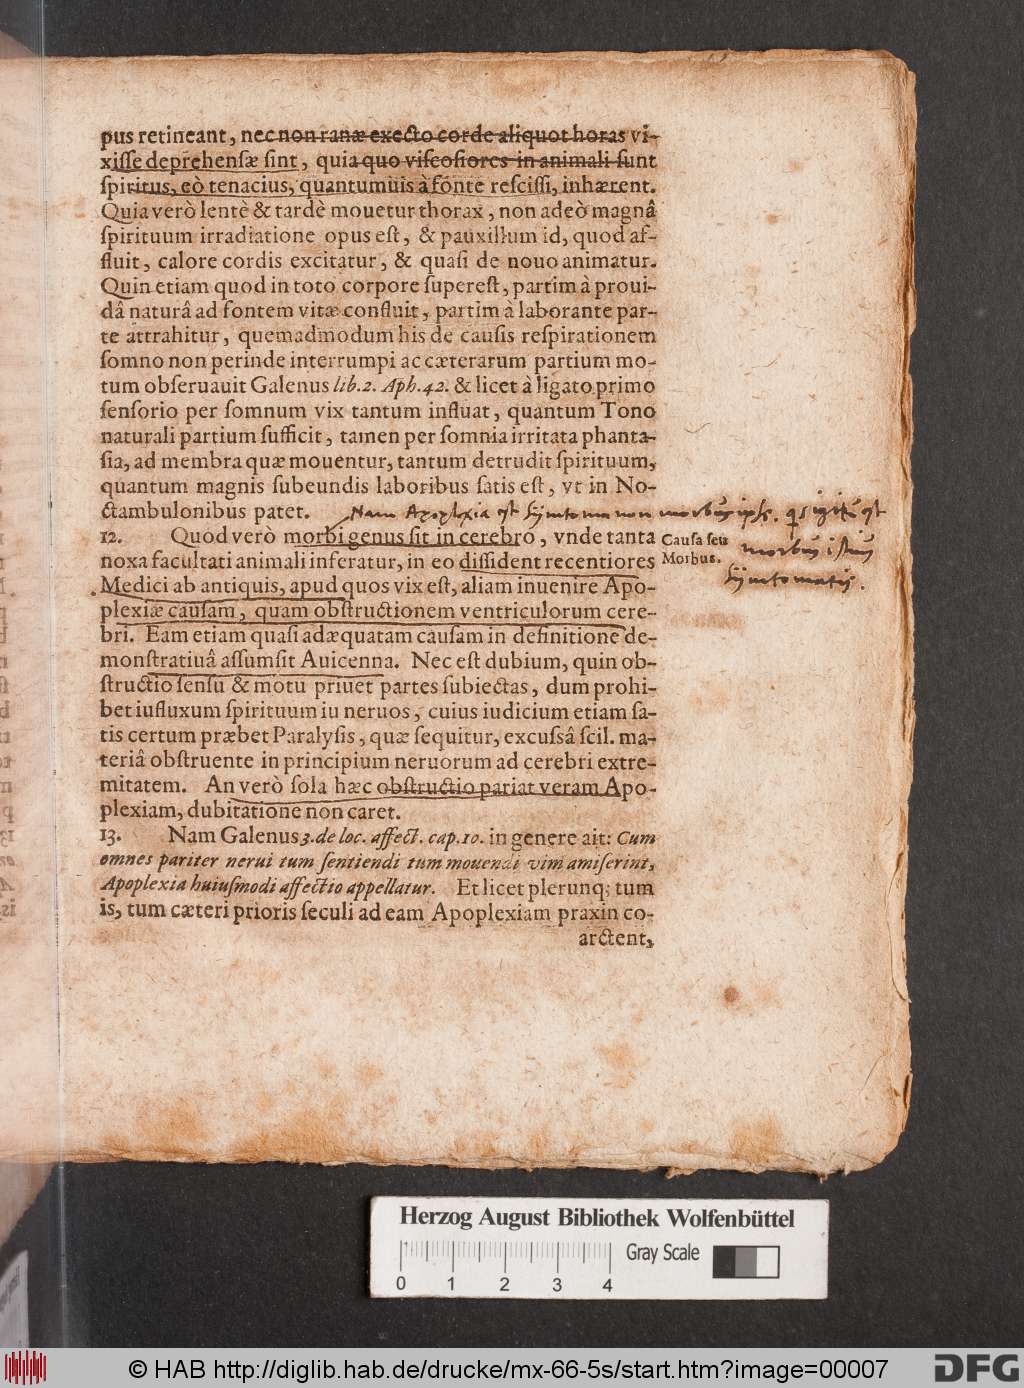 pus retineant, nec non ranæ execto corde aliquot horas vi-
xiſſe deprehenſæ ſint, quia quo viſcoſiores in animali ſunt
ſpiritus, eò tenacius, quantumuis à fonte reſciſſi, inhærent.
Quia verò lentè & tardè mouetur thorax, non adeò magnâ
ſpirituum irradiatione opus eſt, & pauxillum id, quod af-
fluit, calore cordis excitatur, & quaſi de nouo animatur.
Quin etiam quod in toto corpore ſupereſt, partim à proui-
dâ naturâ ad fontem vitæ confluit, partim à laborante par-
te attrahitur, quemadmodum his de cauſis reſpirationem
ſomno non perinde interrumpi ac cæterarum partium mo-
tum obſeruauit Galenus lib. 2. Aph. 42. & licet à ligato primo
ſenſorio per ſomnum vix tantum influat, quantum Tono
naturali partium ſufficit, tamen per ſomnia irritata phanta-
ſia, ad membra quæ mouentur, tantum detrudit ſpirituum,
quantum magnis ſubeundis laboribus ſatis eſt, vt in No-
ctambulonibus patet. Nam Apoplexia est symtoma non morbus ipse. igitur est
12. Quod verò morbi genus ſit in cerebro, vnde tanta
Cauſa ſeu
morbus
noxa facultati animali inferatur, in eo diſſident recentiores
Morbus.
symtomatis.
Medici ab antiquis, apud quos vix eſt, aliam inuenire Apo-
plexiæ cauſam, quam obſtructionem ventriculorum cere-
bri. Eam etiam quaſi adæquatam cauſam in definitione de-
monſtratiuâ aſſumſit Auicenna. Nec eſt dubium, quin ob-
ſtructio ſenſu & motu priuet partes ſubiectas, dum prohi-
bet iufluxum ſpirituum iu neruos, cuius iudicium etiam ſa-
tis certum præbet Paralyſis, quæ ſequitur, excuſsâ ſcil. ma-
teriâ obſtruente in principium neruorum ad cerebri extre-
mitatem. An verò ſola hæc obſtructio pariat veram Apo-
plexiam, dubitatione non caret.
13. Nam Galenus 3. de loc. affect. cap. 10. in genere ait: Cum
omnes pariter nerui tum ſentiendi tum mouendi vim amiſerint,
Apoplexia huiuſmodi affectio appellatur. Et licet plerunq; tum
is, tum cæteri prioris ſeculi ad eam Apoplexiam praxin co-
arctent,
Herzog August Bibliothek Wolfenbüttel
Gray Scale
0 1 2 3 4
© HAB http://diglib.hab.de/drucke/mx-66-5s/start.htm?image=00007
DFG